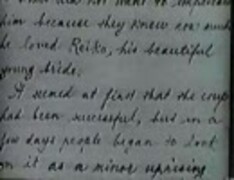 him because they knew how much
he loved Reiko, his beautiful
young bride.
It seemed at first that the coup
had been successful, but in a
few days people began to look
on it as a minor uprising